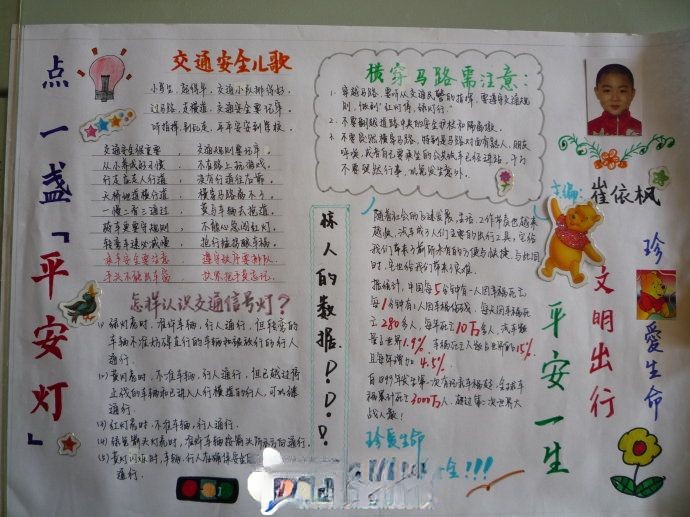 点一盏「平安灯」
交通安全儿歌
小学生,起得早,交通小队排得好.
过马路,走横道,交通安全要记牢.
听指挥,别乱走,平平安安到学校.
交通安全很重要,交通规则要记牢.
从小养成好习惯,不在路上玩游戏.
行走应走人行道,没有行道往右靠.
天桥地道横行道,横穿马路离不了.
一慢二看三通过,莫与车辆去抢道.
骑车更要守规则,不能心急闯红灯.
乘车安全要注意,遵守秩序要排队.
手头不能出车窗,扶紧把手莫忘记.
怎样认识交通信号灯?
(1) 绿灯亮时,准许车辆,行人通行,但转弯的
车辆不准妨碍直行的车辆和被放行的行人
通行.
(2) 黄灯亮时,不准车辆,行人通行,但已越过停
止线的车辆和已进入人行横道的行人,可以继续
通行.
(3) 红灯亮时,不准车辆,行人通行.
(4) 绿色箭头灯亮时,准许车辆按箭头所示方向通行.
(5) 黄灯闪烁时,车辆,行人
通行.
横穿马路需注意:
1. 穿越马路,要听从交通民警的指挥,要遵守交通规
则,做到“红灯停,绿灯行”.
2. 不要翻越道路中央的安全护栏和隔离墩.
3. 不要突然横穿马路,特别是马路对面有熟人、朋友
呼唤,或者自己要乘坐的公共汽车已经进站,千万
不要贸然行事,以免发生意外.
惊人的数据!
随着社会的飞速发展,生活、工作节奏也越来
越快,汽车成了人们主要的出行工具,它给
我们带来了前所未有的方便与快捷.与此同
时,它也给我们带来了灾难.
据统计,中国每5分钟有一人因车祸死亡
每1分钟有1人因车祸伤残,每天因车祸死
亡280多人,每年死亡10万多人,汽车数
量占世界1.9%,车祸死亡人数占世界的15%
且每年增加4.5%.
3000万人,超过第一次世界大
战人数!
珍爱生命
!!!
主编:崔依枫
珍爱生命
文明出行
平安一生